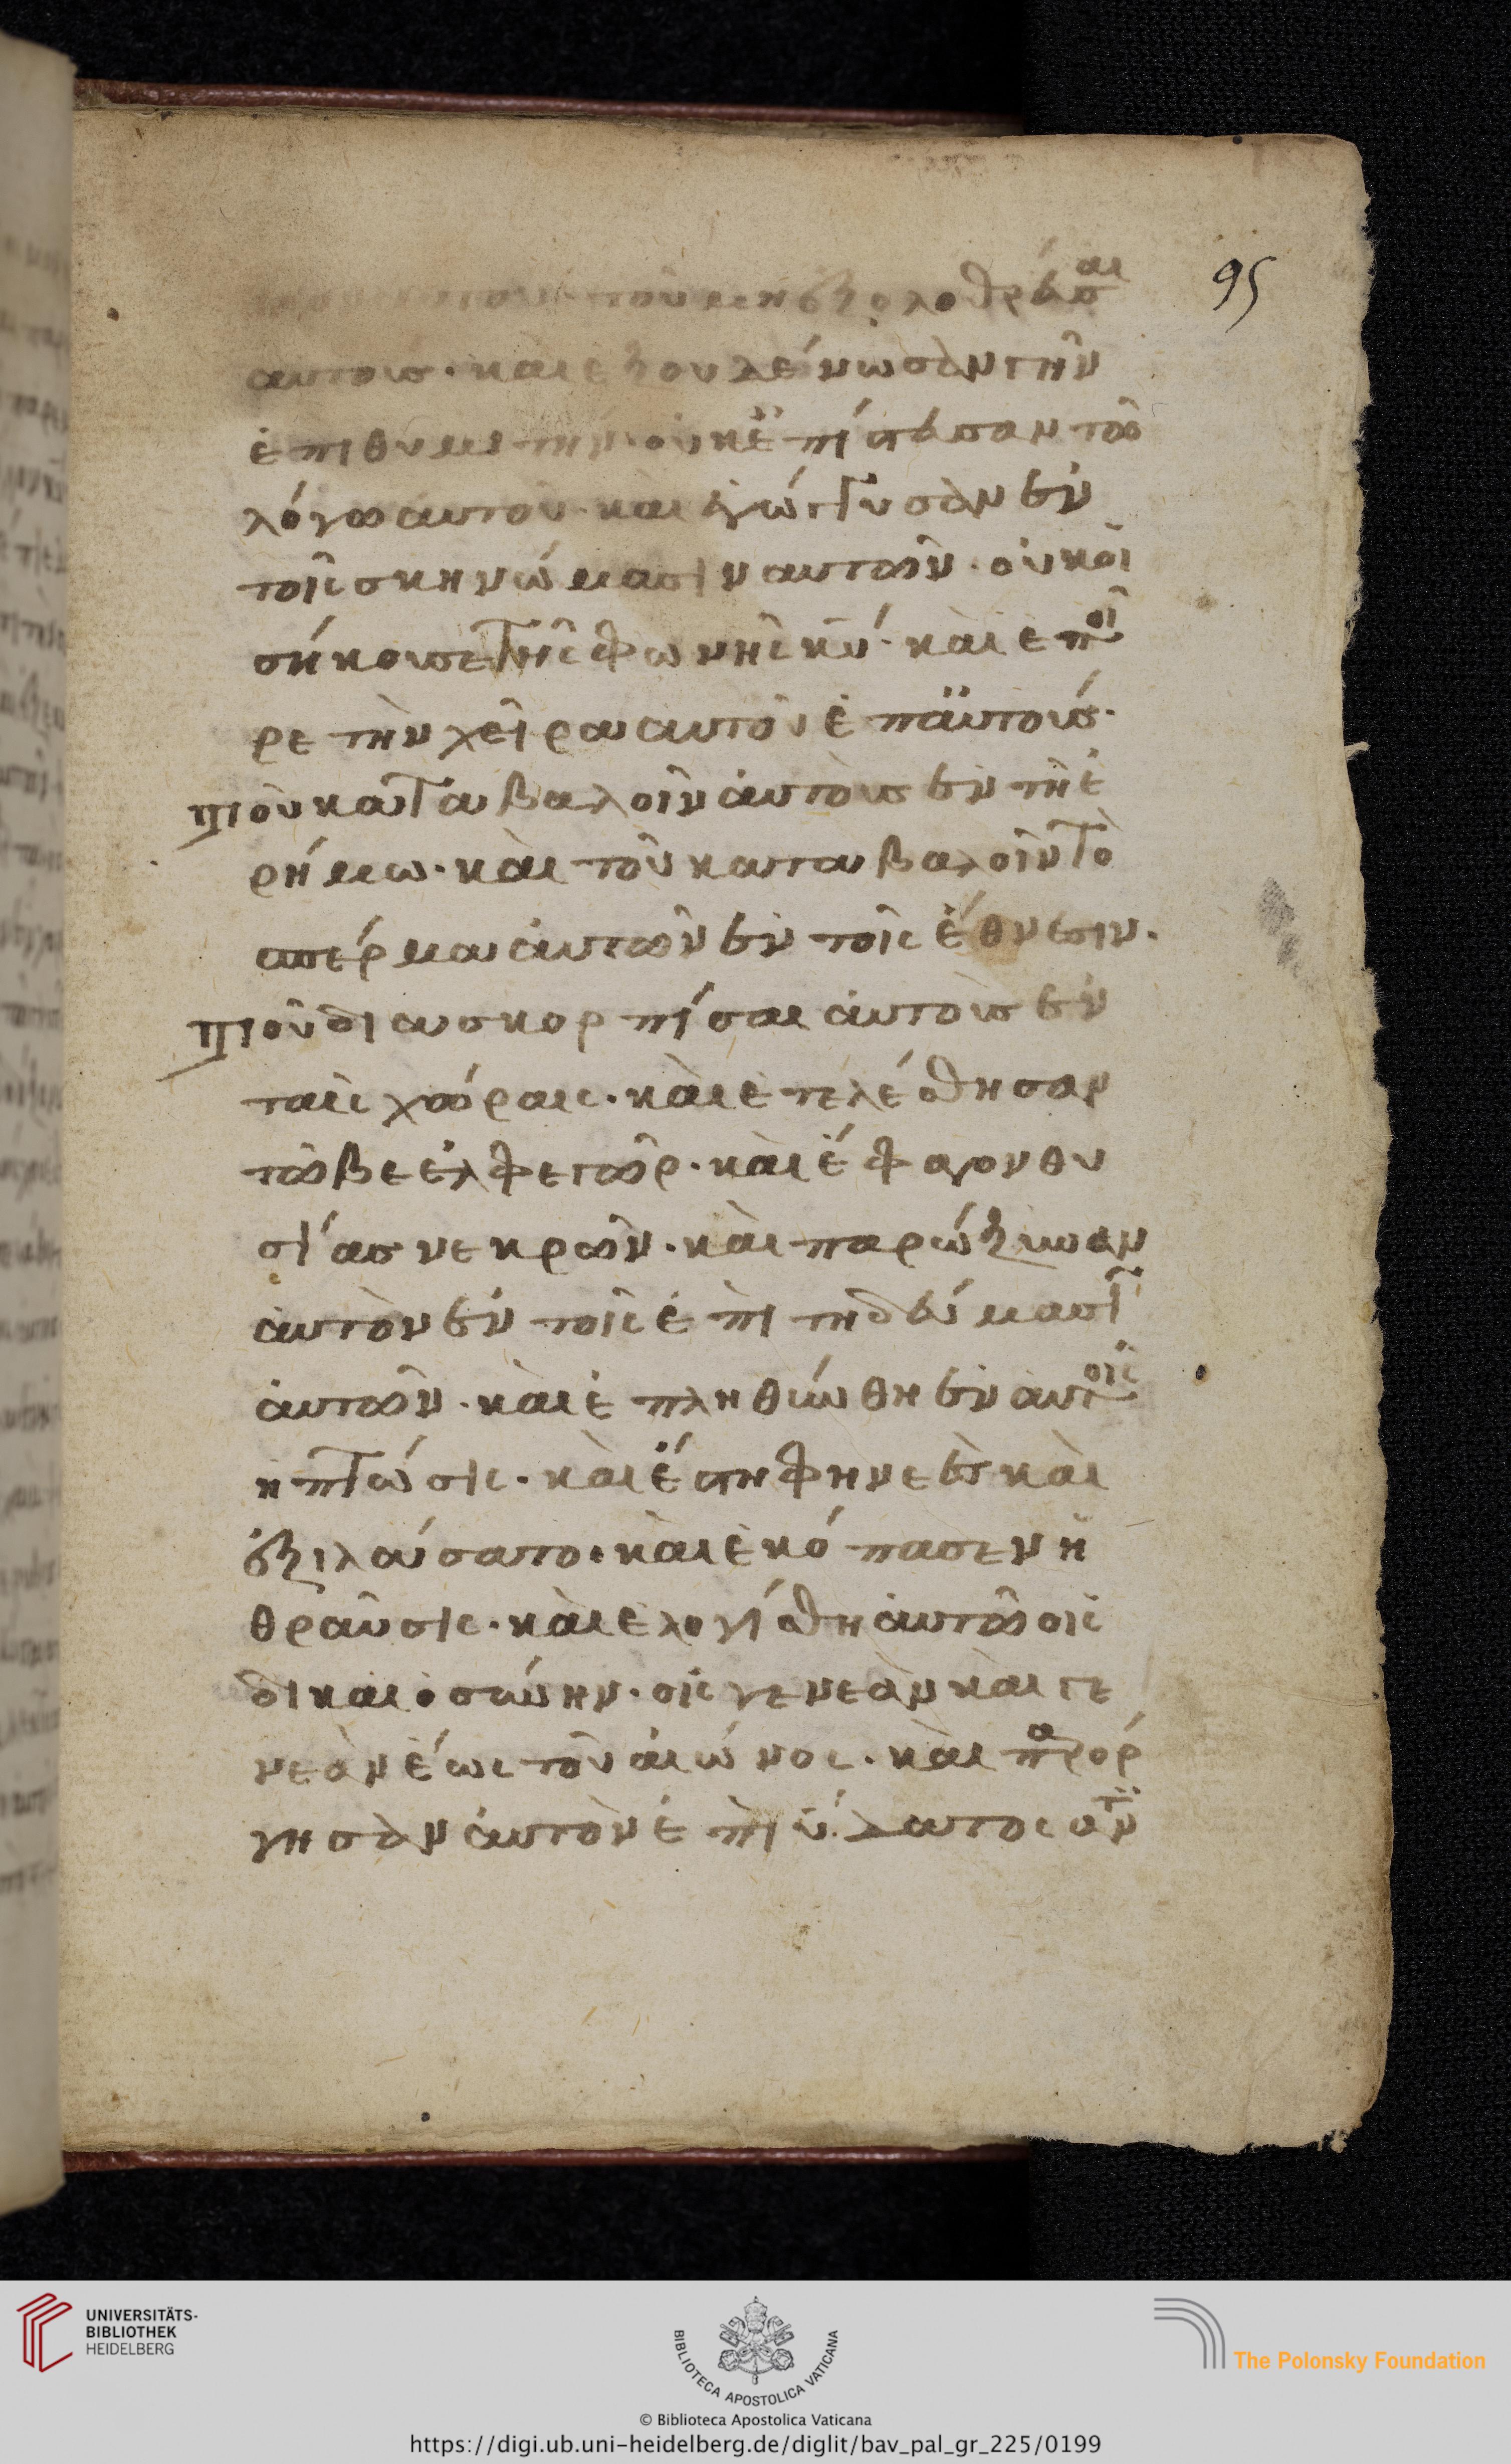 95
τοῦ μὴ ἐξολοθρεῦσαι
αυτους· καὶ ἐξουδένωσαν γῆν
ἐπιθυμητην· οὐκ ἐπίστευσαν τῶ
λόγω αυτοῦ· καὶ ἐγώγγυσαν ἐν
τοῖς σκηνώμασιν αυτῶν· οὐκ εἰ
σήκουσε τῆς φωνῆς κῦ· καὶ ἐπῆ
ρε τὴν χεῖρα αυτοῦ ἐπ αὐτούς·
τοῦ καταβαλεῖν ἀυτοὺς ἐν τῆ ἐ
ρήμω· καὶ τοῦ καταβαλεῖν τὸ
σπέρμα ἀυτῶν ἐν τοῖς ἔθνεσιν·
τοῦ διασκορπίσαι ἀυτοὺς ἐν
ταῖς χώραις· καὶ ἐτελέσθησαν
τῶ βεελφεγῶρ· καὶ ἔφαγον θυ
σίας νεκρῶν· καὶ παρώξυναν
ἀυτὸν ἐν τοῖς ἐπιτηδεύμασι
ἀυτῶν· καὶ ἐπληθύνθη ἐν ἀυτοῖς
η πτώσις· καὶ ἔστη φηνεὲς καὶ
ἐξιλάσατο· καὶ ἐκόπασεν ἡ
θραῦσις· καὶ ἐλογίσθη ἀυτῶ εἰς
δικαιοσύνην· εἰς γενεὰν καὶ γε
νεὰν ἕως τοῦ ἀιώνος· καὶ παρόρ
γησαν ἀυτὸν ἐπὶ ὕδατος ἀντι
UNIVERSITÄTS-
BIBLIOTHEK
HEIDELBERG
BIBLIOTECA APOSTOLICA VATICANA
The Polonsky Foundation
© Biblioteca Apostolica Vaticana
https://digi.ub.uni-heidelberg.de/diglit/bav_pal_gr_225/0199